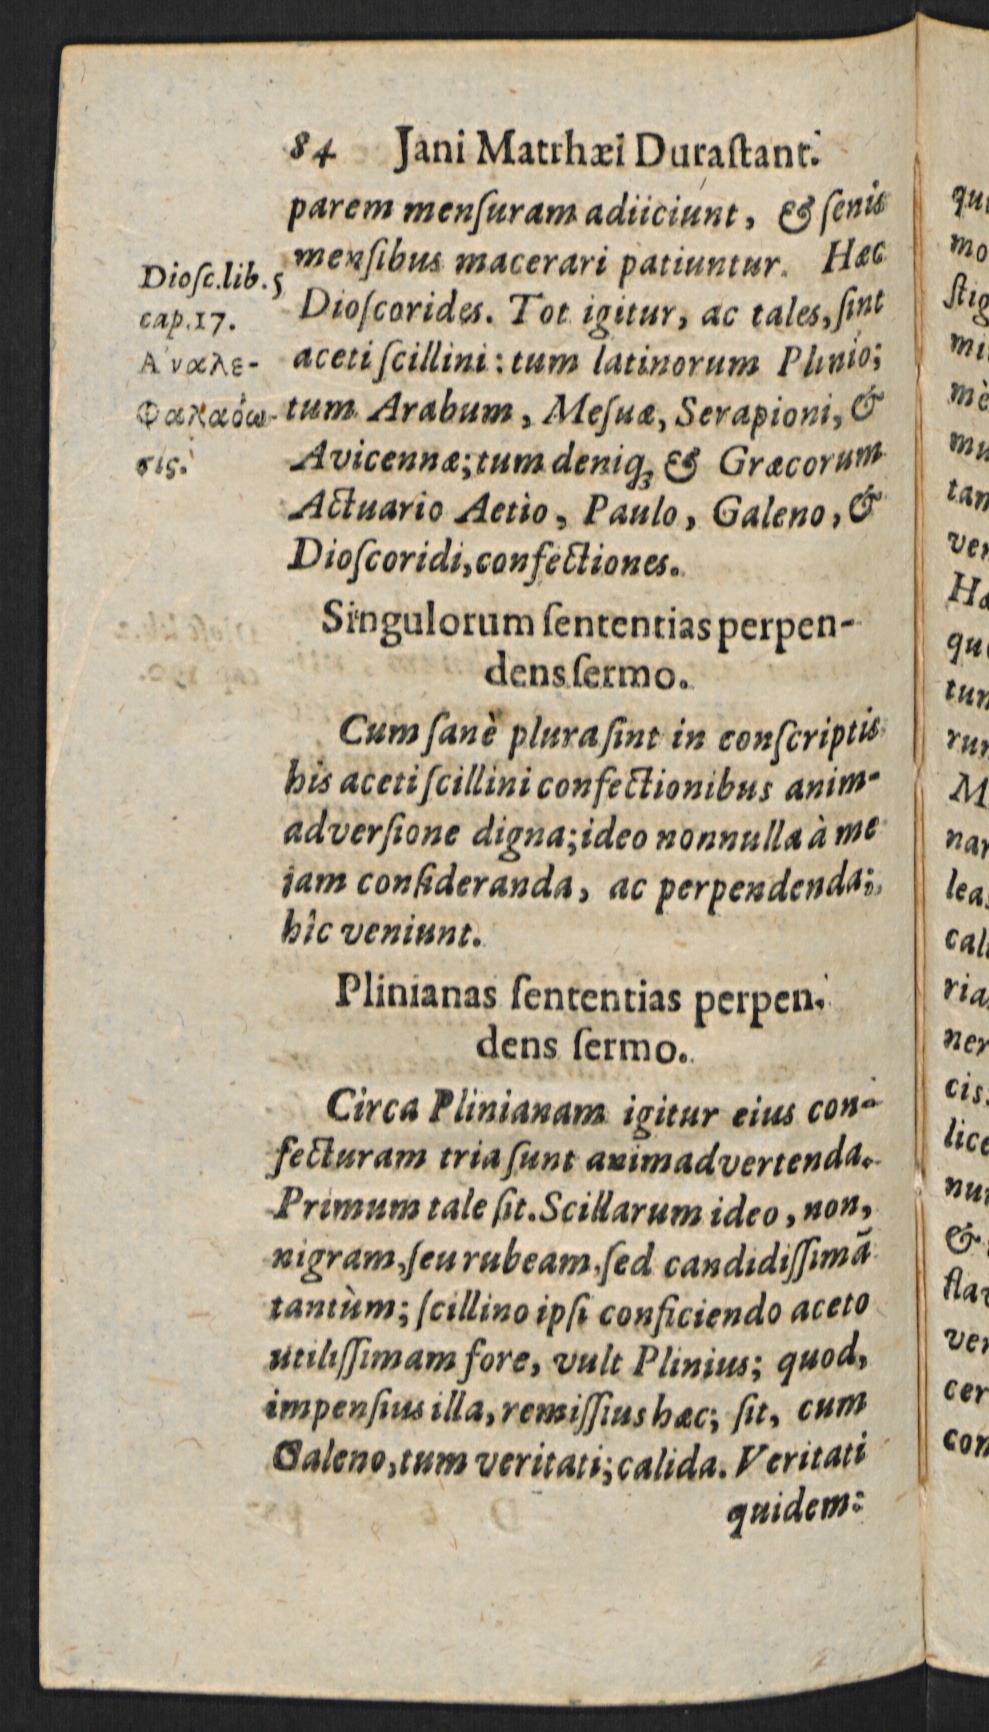 84 Jani Matthæi Durastant.
parem mensuram adiiciunt, & senis
mensibus macerari patiuntur. Hæc
Dioscorides. Tot igitur, ac tales, sint
aceti scillini: tum latinorum Plinio;
tum Arabum, Mesuæ, Serapioni, &
Avicennæ; tum deniq; & Græcorum
Actuario Aetio, Paulo, Galeno, &
Dioscoridi, confectiones.
Diosc. lib. 5
cap. 17.
Αναλε-
σις.
Singulorum sententias perpen-
dens sermo.
Cum sanè plura sint in conscriptis
his aceti scillini confectionibus anim-
adversione digna; ideo nonnulla à me
jam consideranda, ac perpendenda;
hîc veniunt.
Plinianas sententias perpen-
dens sermo.
Circa Plinianam igitur eius con-
fecturam tria sunt animadvertenda.
Primum tale sit. Scillarum ideo, non,
nigram, seu rubeam, sed candidissimā
tantùm; scillino ipsi conficiendo aceto
utilissimam fore, vult Plinius; quod,
impensius illa, remissius hæc; sit, cum
Galeno, tum veritati; calida. Veritati
quidem:
qui
mo
stig
mi
mè
mu
tan
ver
Hæ
que
tun
rur
M
nar
leas
cal
ria
ner
cis
lice
nu
&
flav
ver
cer
con